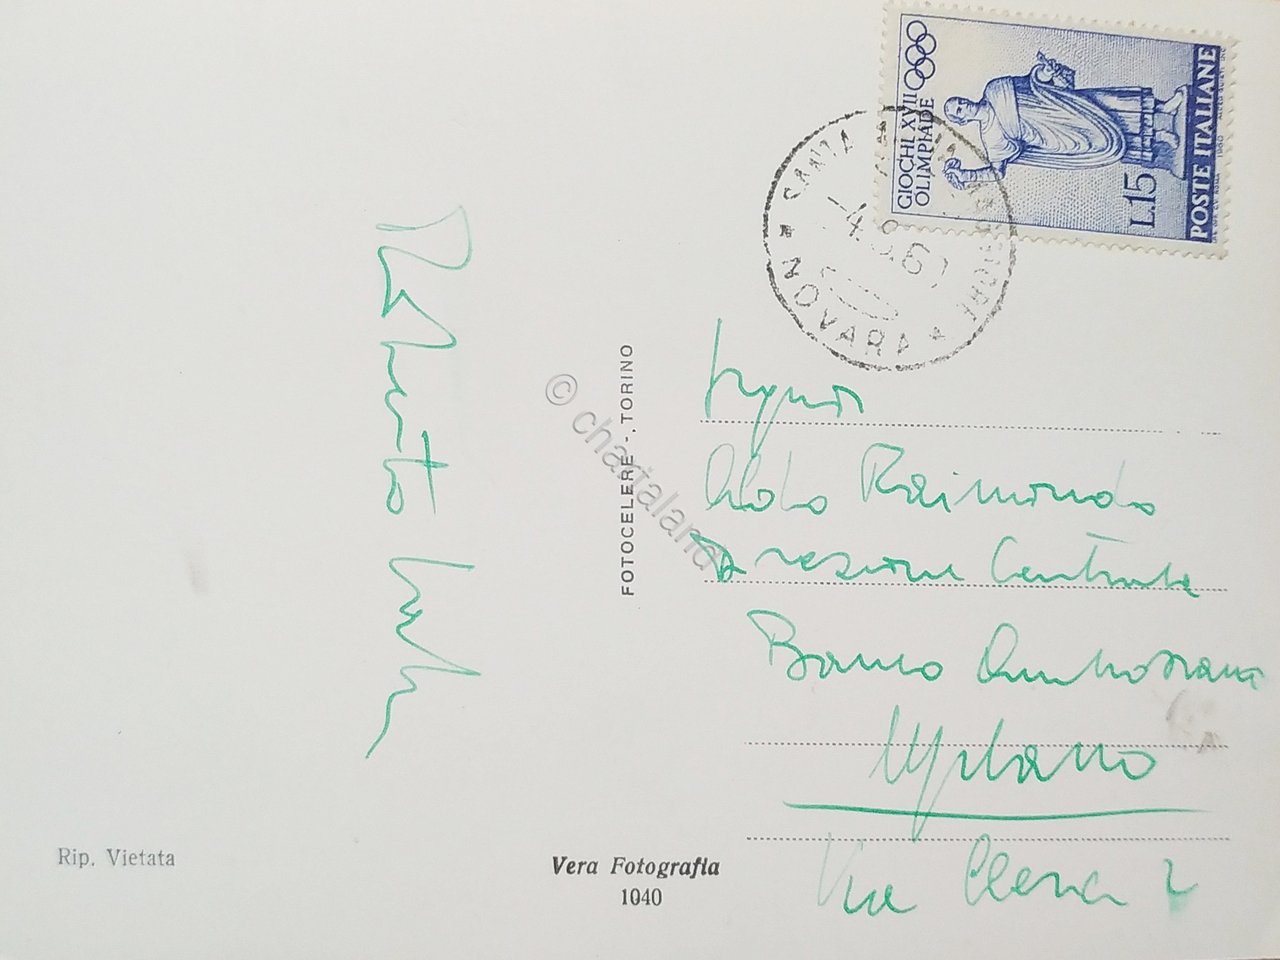 GIOCHI XVII
OLIMPIADE
L.15
POSTE ITALIANE
1960
SANTA MARIA MAGGIORE
* NOVARA *
-4.8.60
Renato
FOTOCELERE - TORINO
© chartaland
Signor
Aldo Raimondo
Direzione Centrale
Banco Ambrosiano
Milano
Via Clerici 2
Rip. Vietata
Vera Fotografia
1040